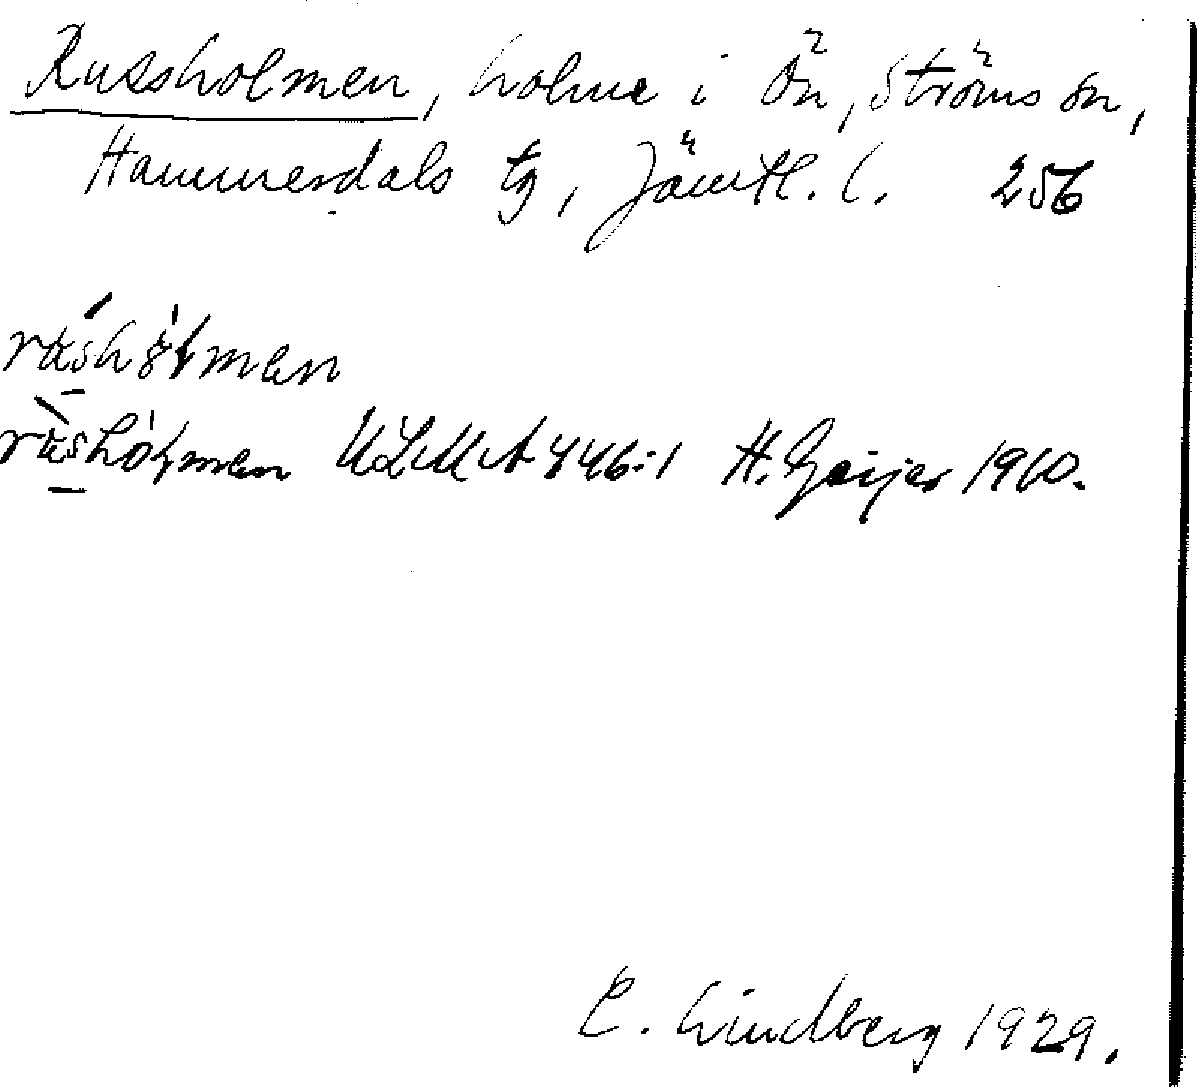 Russholmen, holme i Ön, Ströms sn,
Hammerdals tg, Jämtl. l. 256
ULMA 446:1 H. Geijer 1910.
C. Lindberg 1929.